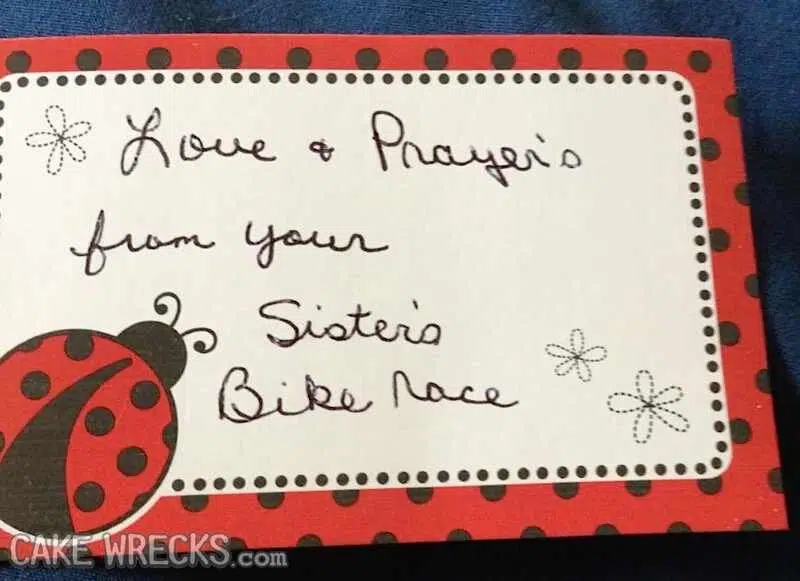 Love & Prayer's
from your
Sister's
Bike race
CAKE WRECKS.com